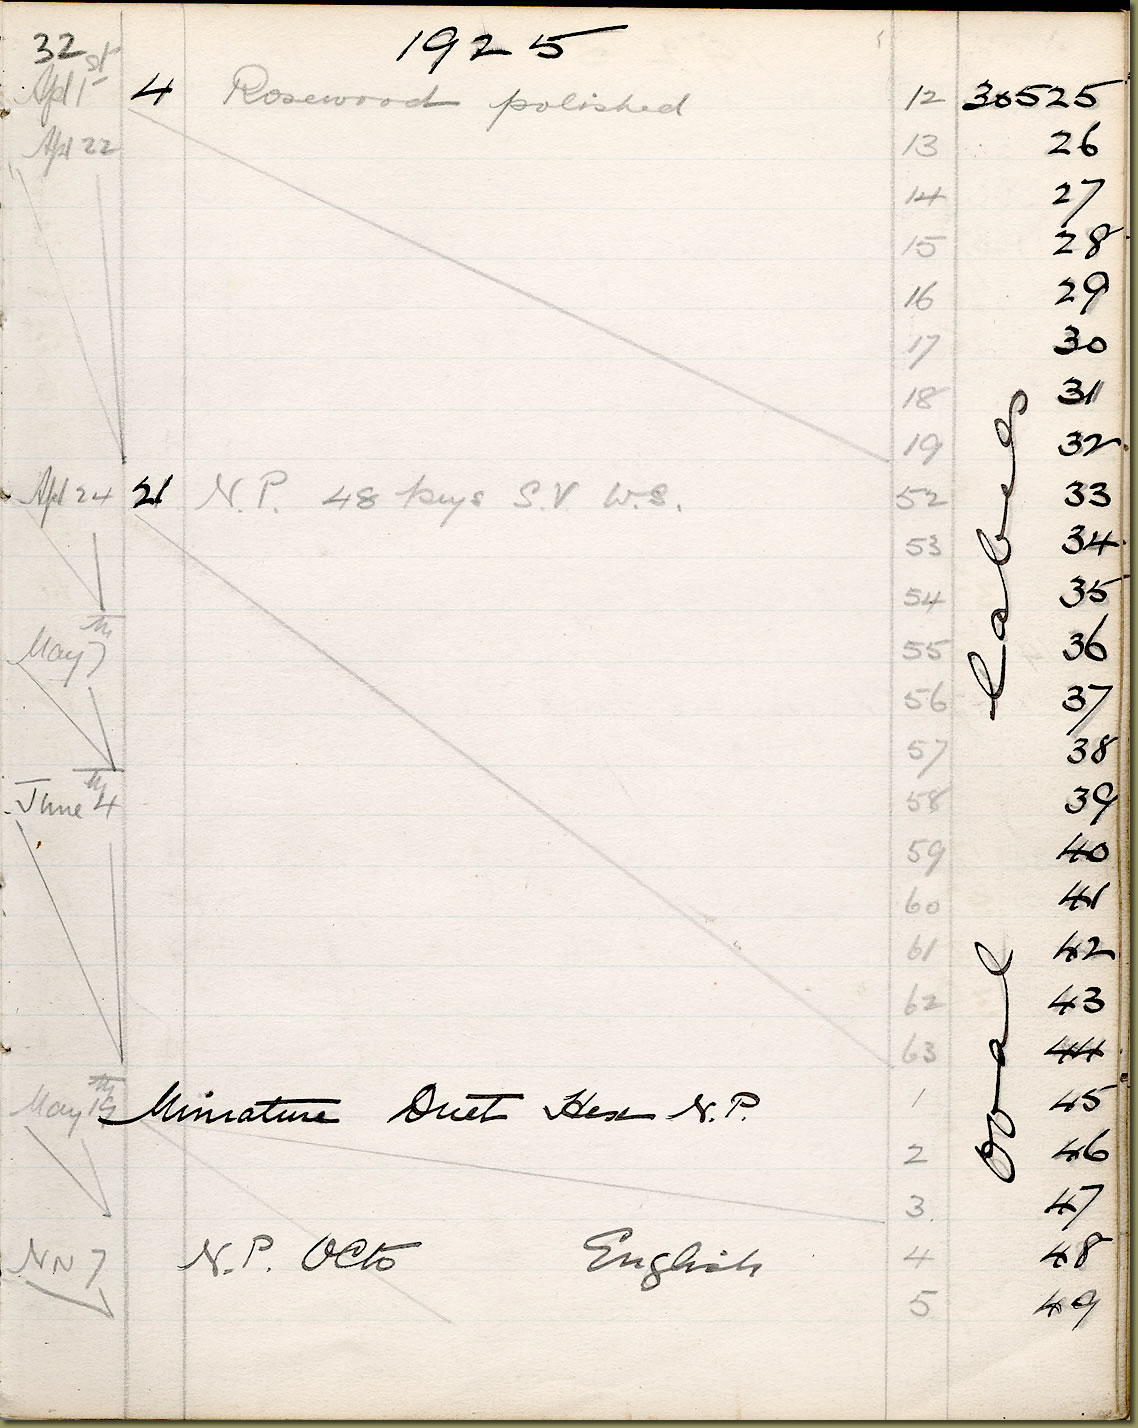 32 1925
Apl 1st 4 Rosewood polished 12 30525
Apl 22 13 26
14 27
15 28
16 29
17 30
18 31
19 32
Apl 24 21 N.P. 48 keys S.V W.S. 52 33
53 34
54 35
May 7th 55 36
56 37
57 38
June 4th 58 39
59 40
60 41
61 42
62 43
63 44
May 19th Miniature Duet Hex N.P. 1 45
2 46
3. 47
Nov 7 N.P. Octo English 4 48
5 49
Oval Labels